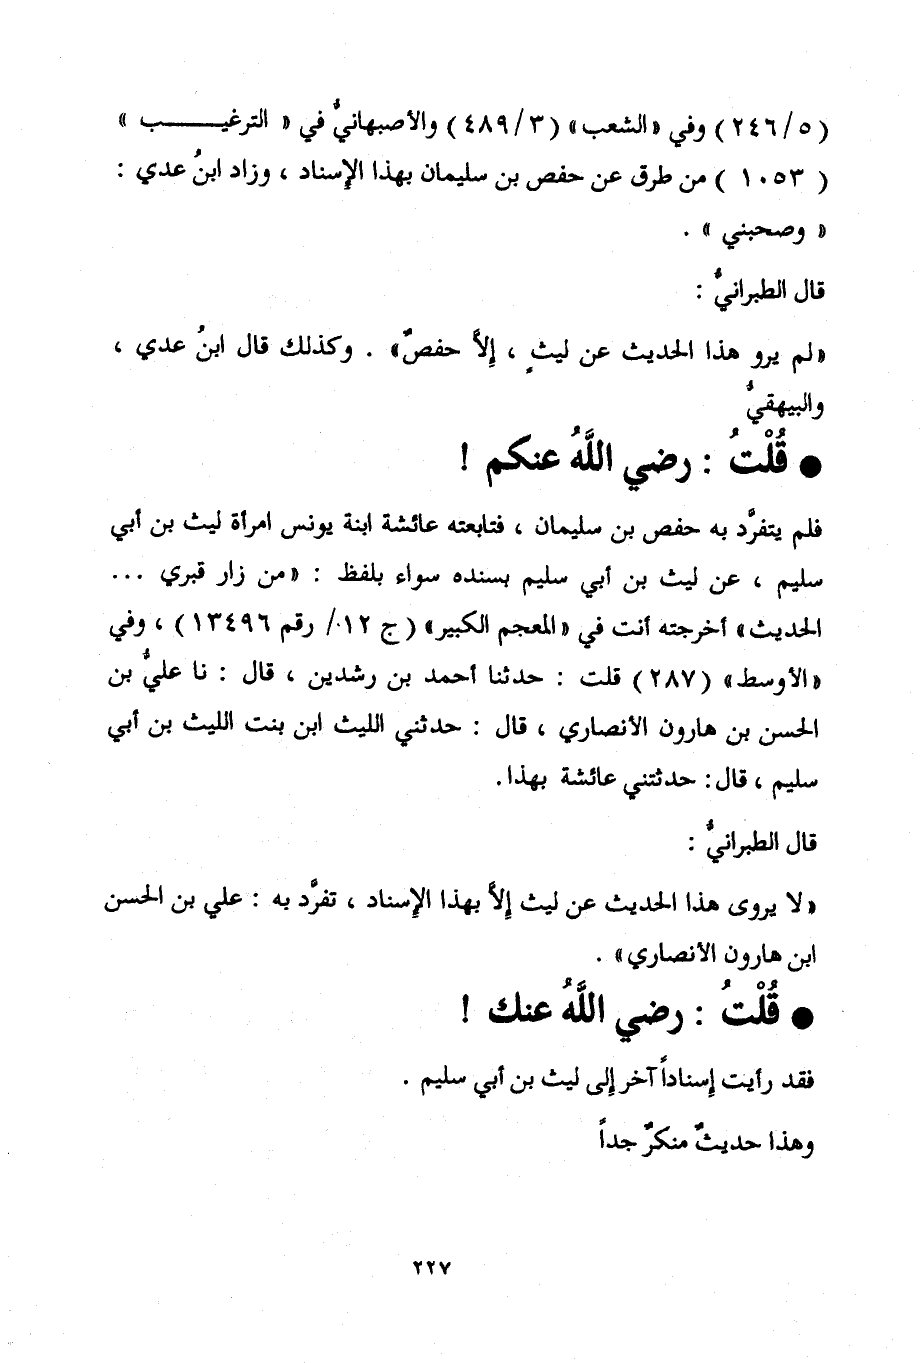 (٢٤٦/٥) وفي «الشعب» (٤٨٩/٣) والأصبهانيُّ في « الترغيـــــــب »
( ١٠٥٣ ) من طرق عن حفص بن سليمان بهذا الإسناد ، وزاد ابنُ عدي :
« وصحبني » .
قال الطبرانيُّ :
«لم يرو هذا الحديث عن ليثٍ ، إلاَّ حفصٌ» . وكذلك قال ابنُ عدي ،
والبيهقيُّ
● قُلْتُ : رضي اللَّهُ عنكم !
فلم يتفرَّد به حفص بن سليمان ، فتابعته عائشة ابنة يونس امرأة ليث بن أبي
سليم ، عن ليث بن أبي سليم بسنده سواء بلفظ : «من زار قبري ...
الحديث» أخرجته أنت في «المعجم الكبير» (ج ١٢/ رقم ١٣٤٩٦) ، وفي
«الأوسط» (٢٨٧) قلت : حدثنا أحمد بن رشدين ، قال : نا عليُّ بن
الحسن بن هارون الأنصاري ، قال : حدثني الليث ابن بنت الليث بن أبي
سليم ، قال: حدثتني عائشة بهذا.
قال الطبرانيُّ :
«لا يروى هذا الحديث عن ليث إلاَّ بهذا الإسناد ، تفرَّد به : علي بن الحسن
ابن هارون الأنصاري» .
● قُلْتُ : رضي اللَّهُ عنك !
فقد رأيت إسناداً آخر إلى ليث بن أبي سليم .
وهذا حديثٌ منكرٌ جداً
٢٢٧